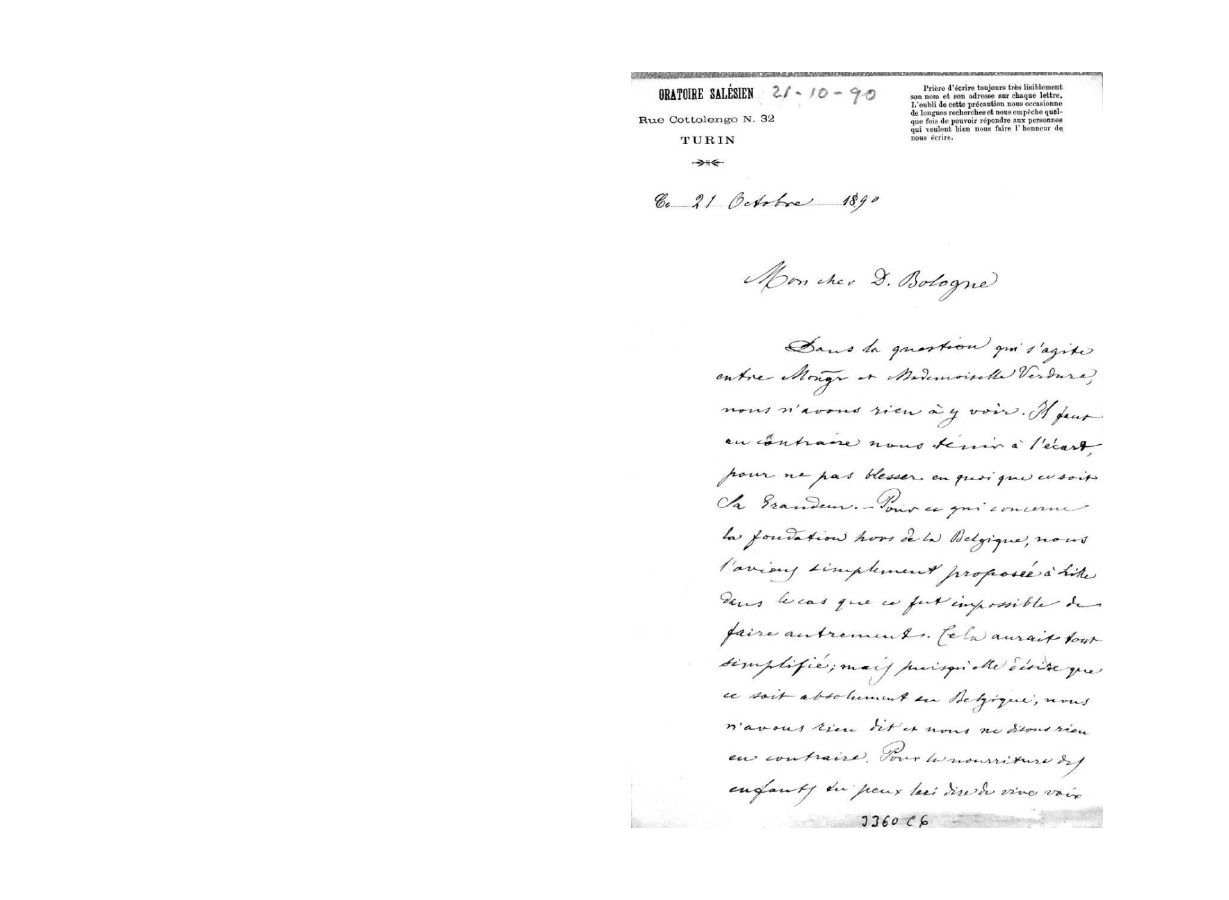 ORATOIRE SALÉSIEN 21-10-90
Rue Cottolengo N. 32
TURIN
Prière d'écrire toujours très lisiblement
son nom et son adresse sur chaque lettre.
L'oubli de cette précaution nous occasionne
de longues recherches et nous empêche quel-
que fois de pouvoir répondre aux personnes
qui veulent bien nous faire l'honneur de
nous écrire.
Ce 21 Octobre 1890
Mon cher D. Bologne
Dans la question qui s'agite
entre Mongr et Mademoiselle Verdure,
nous n'avons rien à y voir. Il faut
au contraire nous tenir à l'écart,
pour ne pas blesser en quoi que ce soit
Sa Grandeur. - Pour ce qui concerne
la fondation hors de la Belgique, nous
l'avions simplement proposée à Lille
dans le cas que ce fut impossible de
faire autrement. Cela aurait tout
simplifié; mais puisqu'elle désire que
ce soit absolument en Belgique, nous
n'avons rien dit et nous ne disons rien
en contraire. Pour la nourriture des
enfants tu peux lui dire de vive voix
3360 C6